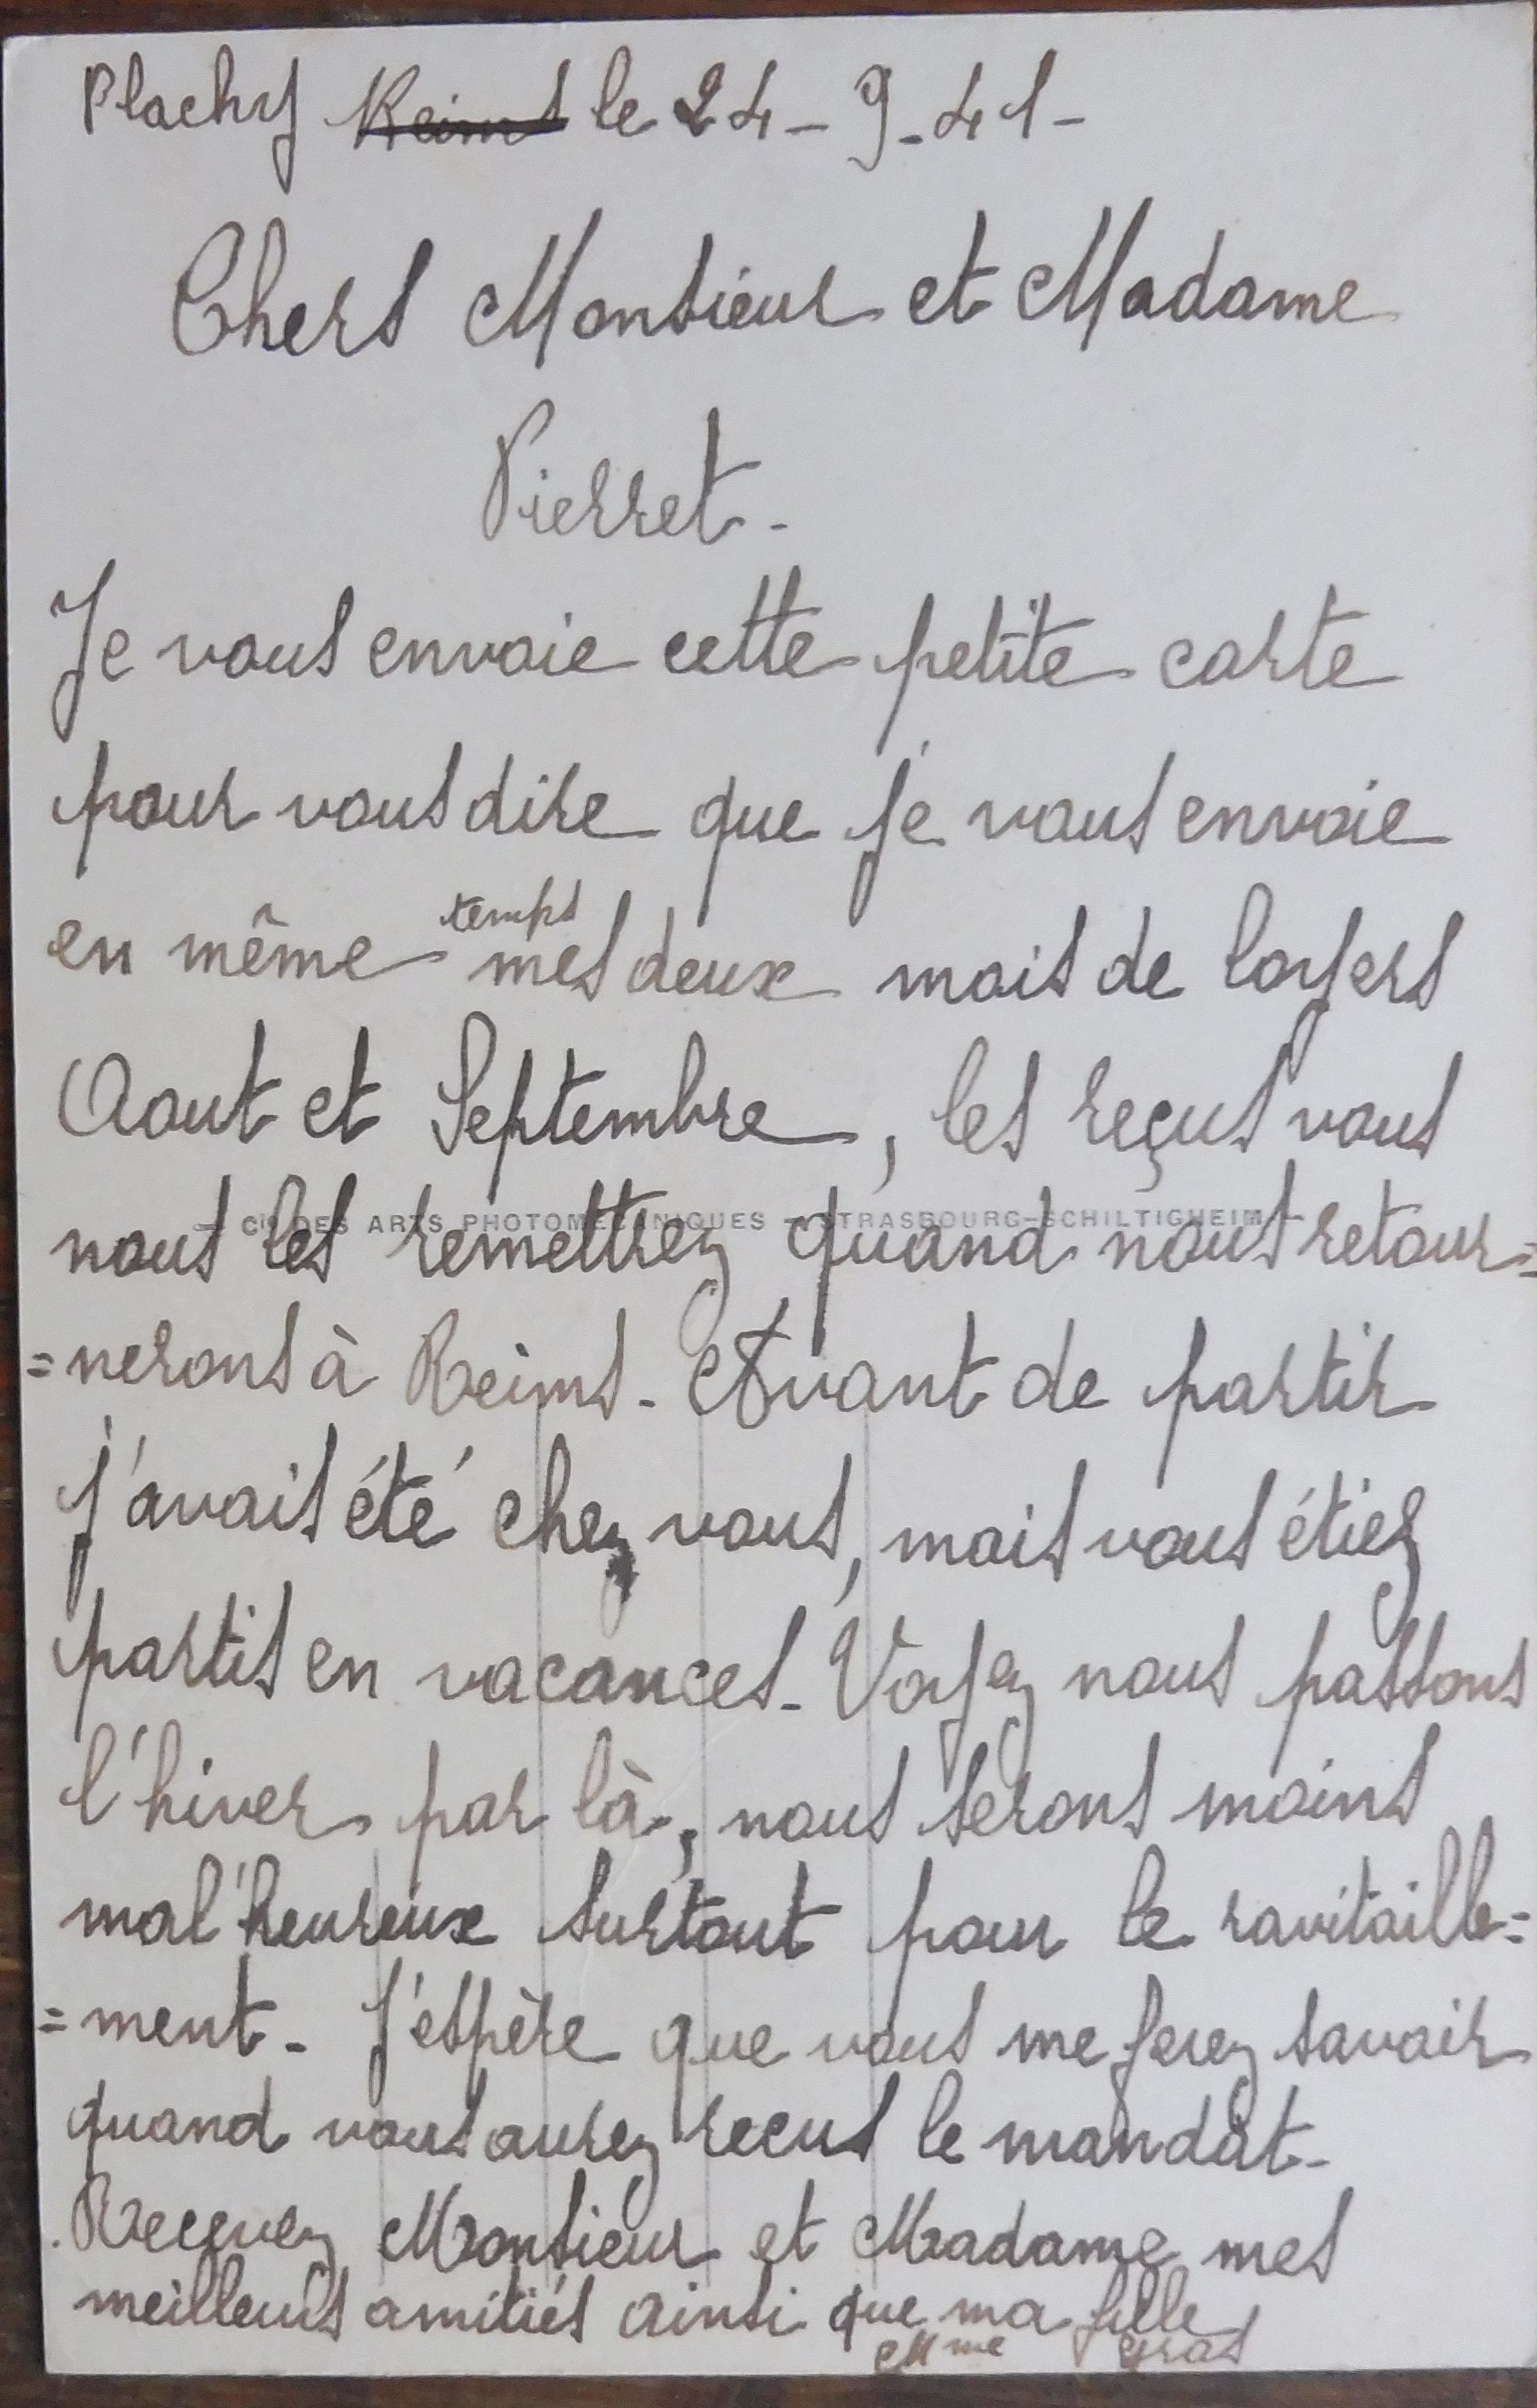 Plachy Reims le 24-9-41-
Chers Monsieur et Madame
Pierret-
Je vous envoie cette petite carte
pour vous dire que je vous envoie
en même temps mes deux mois de loyers
Aout et Septembre, les reçus vous
CIE DES ARTS PHOTOMECANIQUES - STRASBOURG-SCHILTIGHEIM
nous les remettrez quand nous retour=
=nerons à Reims. Avant de partir
j'avais été chez vous, mais vous étiez
partis en vacances. Voyez nous passons
l'hiver par là, nous serons moins
mal'heureux surtout pour le ravitaille=
=ment. J'espère que vous me ferez savoir
quand vous aurez recus le mandat.
Recevez Monsieur et Madame mes
meilleurs amitiés ainsi que ma fille
Mme Gras